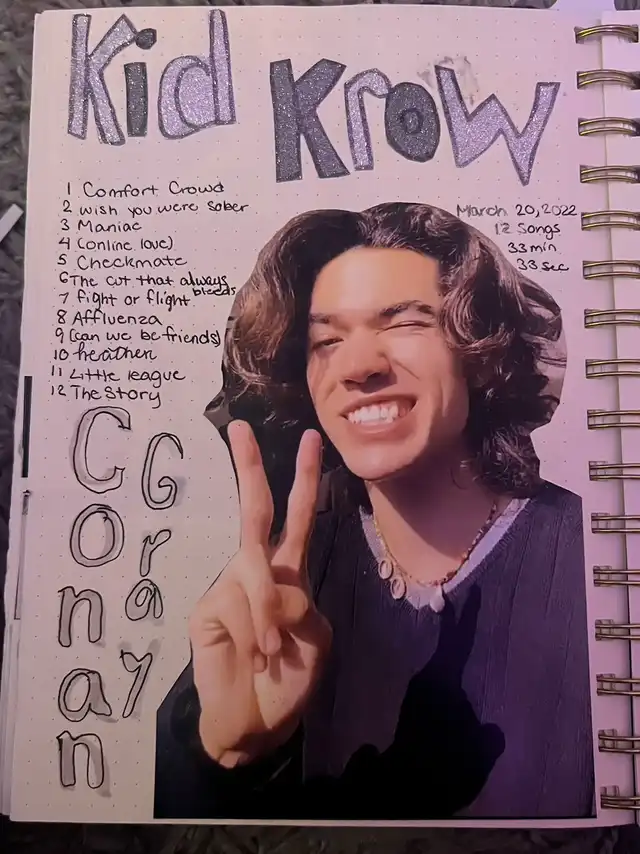 Kid Krow
1 Comfort Crowd
2 wish you were sober
3 Maniac
4 (online love)
5 Checkmate
6 The cut that always bleeds
7 fight or flight
8 Affluenza
9 (can we be friends)
10 heather
11 Little league
12 The Story
March 20, 2022
12 Songs
33 min
33 sec
Conan
Gray